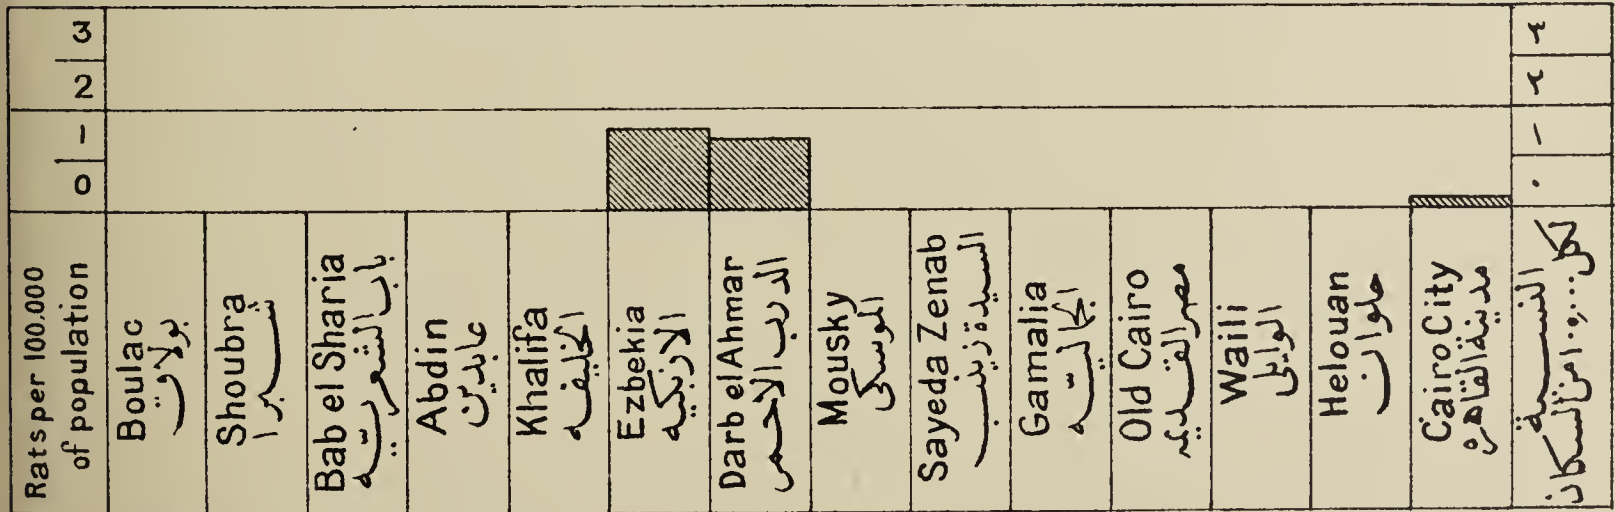 3
2
1
0
Rats per 100,000
of population
Boulac
بولاق
Shoubra
شبرا
Bab el Sharia
باب الشعريه
Abdin
عابدين
Khalifa
الخليفه
Ezbekia
الازبكيه
Darb el Ahmar
الدرب الاحمر
Mousky
الموسكى
Sayeda Zenab
السيدة زينب
Gamalia
الجماليه
Old Cairo
مصر القديمه
Waili
الوايلى
Helouan
حلوان
Cairo City
مدينة القاهره
٣
٢
١
٠
النسبة
لكل ١٠٠,٠٠٠ من السكان